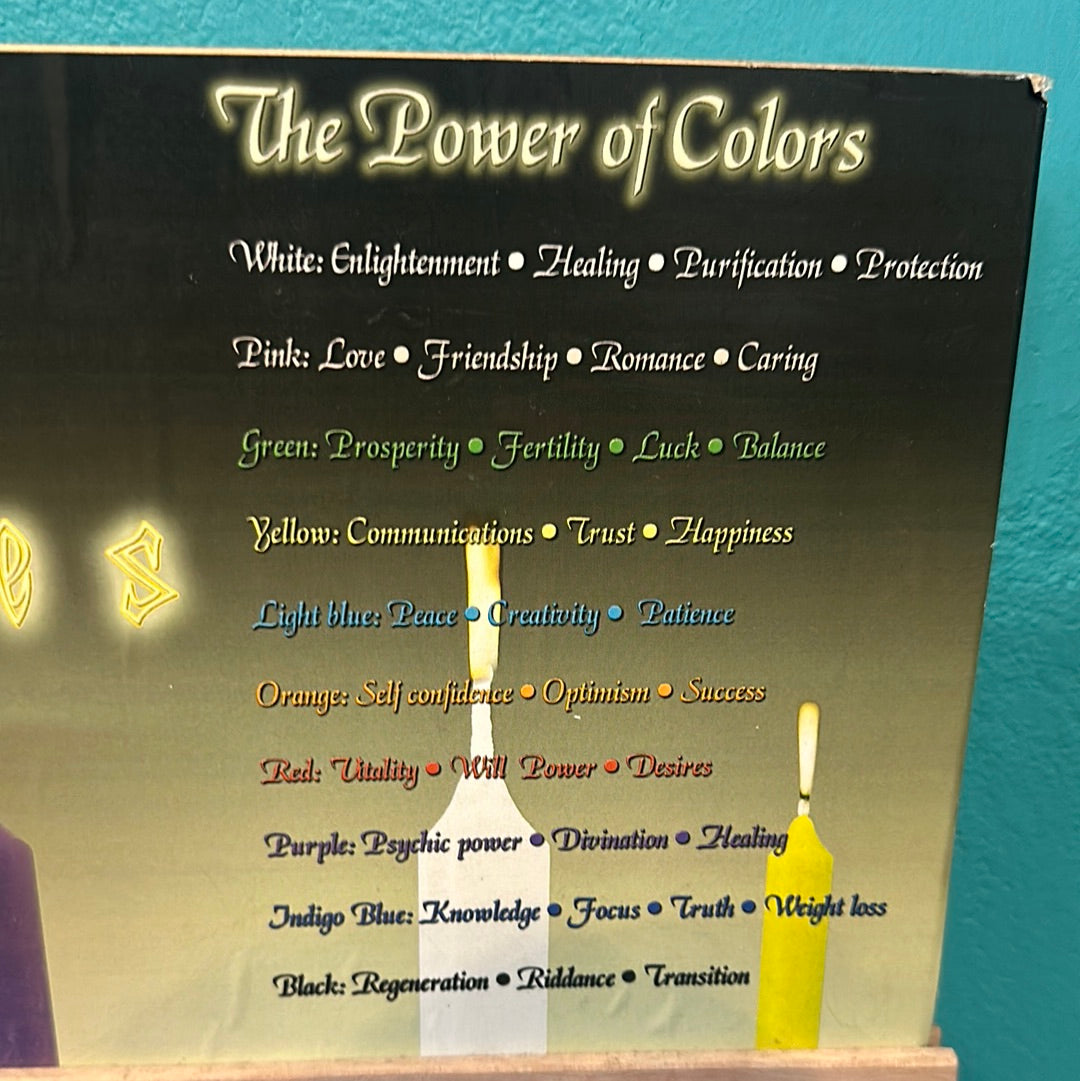 The Power of Colors
White: Enlightenment • Healing • Purification • Protection
Pink: Love • Friendship • Romance • Caring
Green: Prosperity • Fertility • Luck • Balance
Yellow: Communications • Trust • Happiness
es
Light blue: Peace • Creativity • Patience
Orange: Self confidence • Optimism • Success
Red: Vitality • Will Power • Desires
Purple: Psychic power • Divination • Healing
Indigo Blue: Knowledge • Focus • Truth • Weight loss
Black: Regeneration • Riddance • Transition